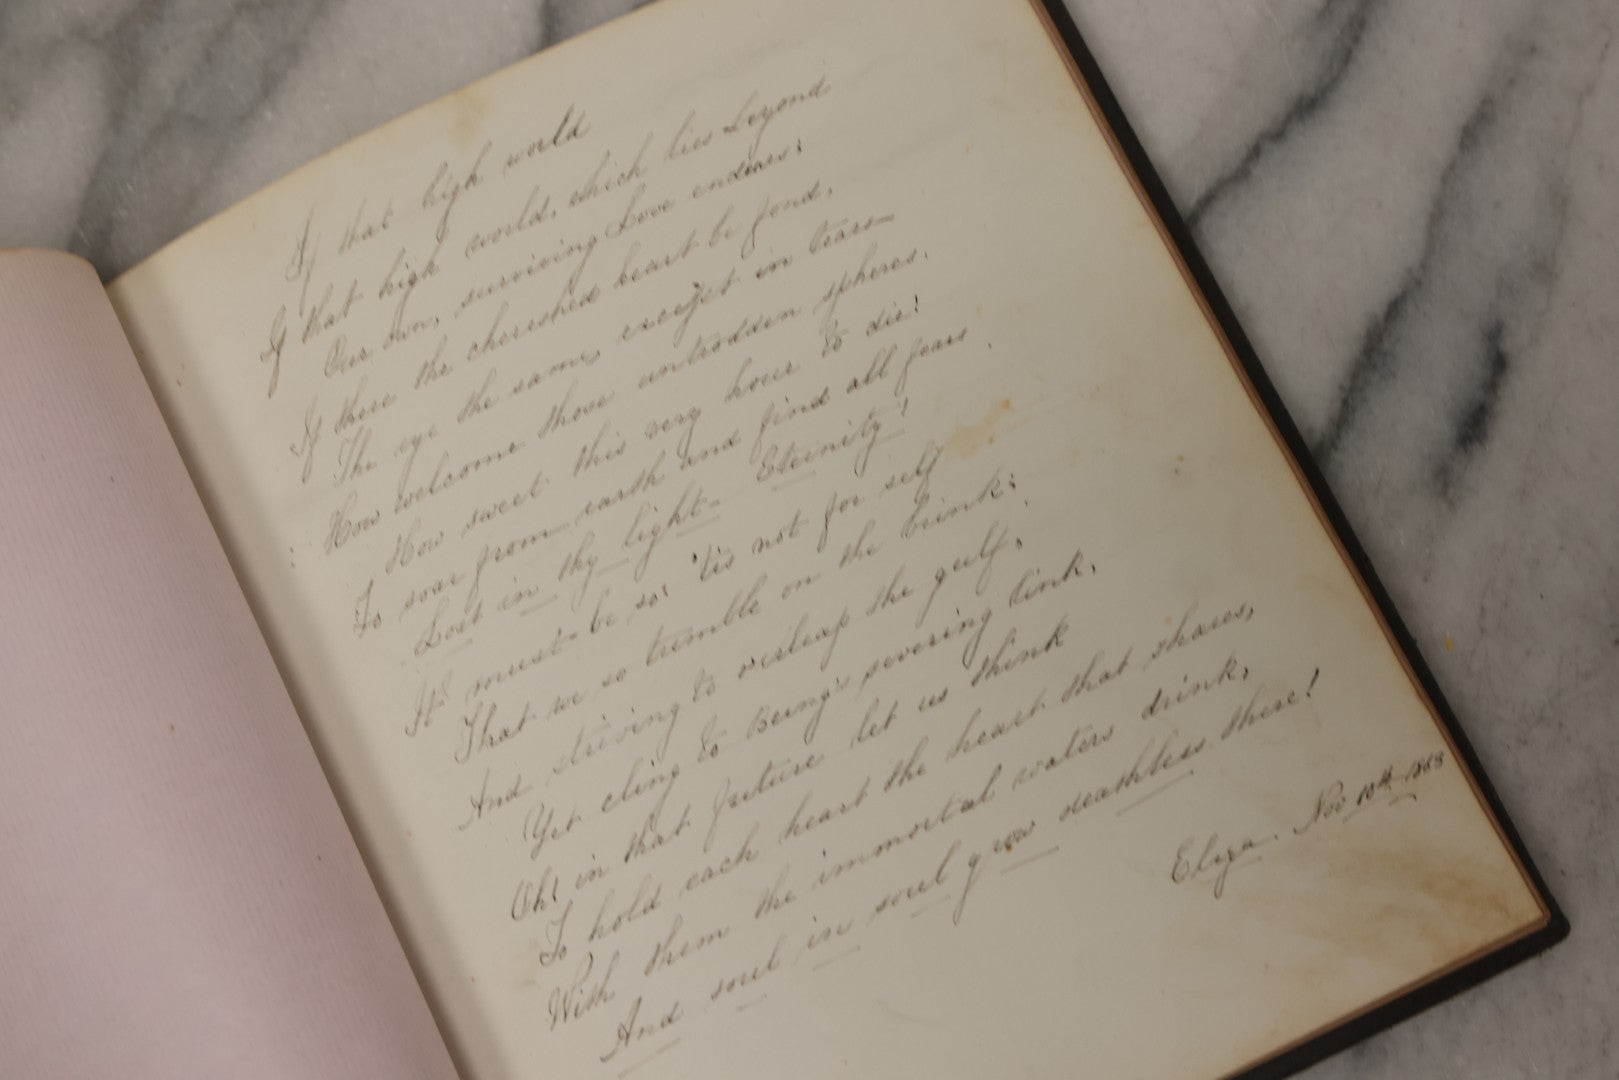 If that high world
If that high world, which lies beyond
Our own, surviving Love endears:
If there the cherished heart be fond,
The eye the same, except in tears—
How welcome those untrodden spheres.
How sweet this very hour to die!
To soar from earth and find all fears
Lost in thy light- Eternity!
It must be so: 'tis not for self
That we so tremble on the brink:
And striving to overleap the gulf,
Yet cling to Being's severing link.
Oh! in that future let us think
To hold each heart the heart that shares,
With them the immortal waters drink,
And soul in soul grow deathless there!
Eliza. Nov 10th 1868